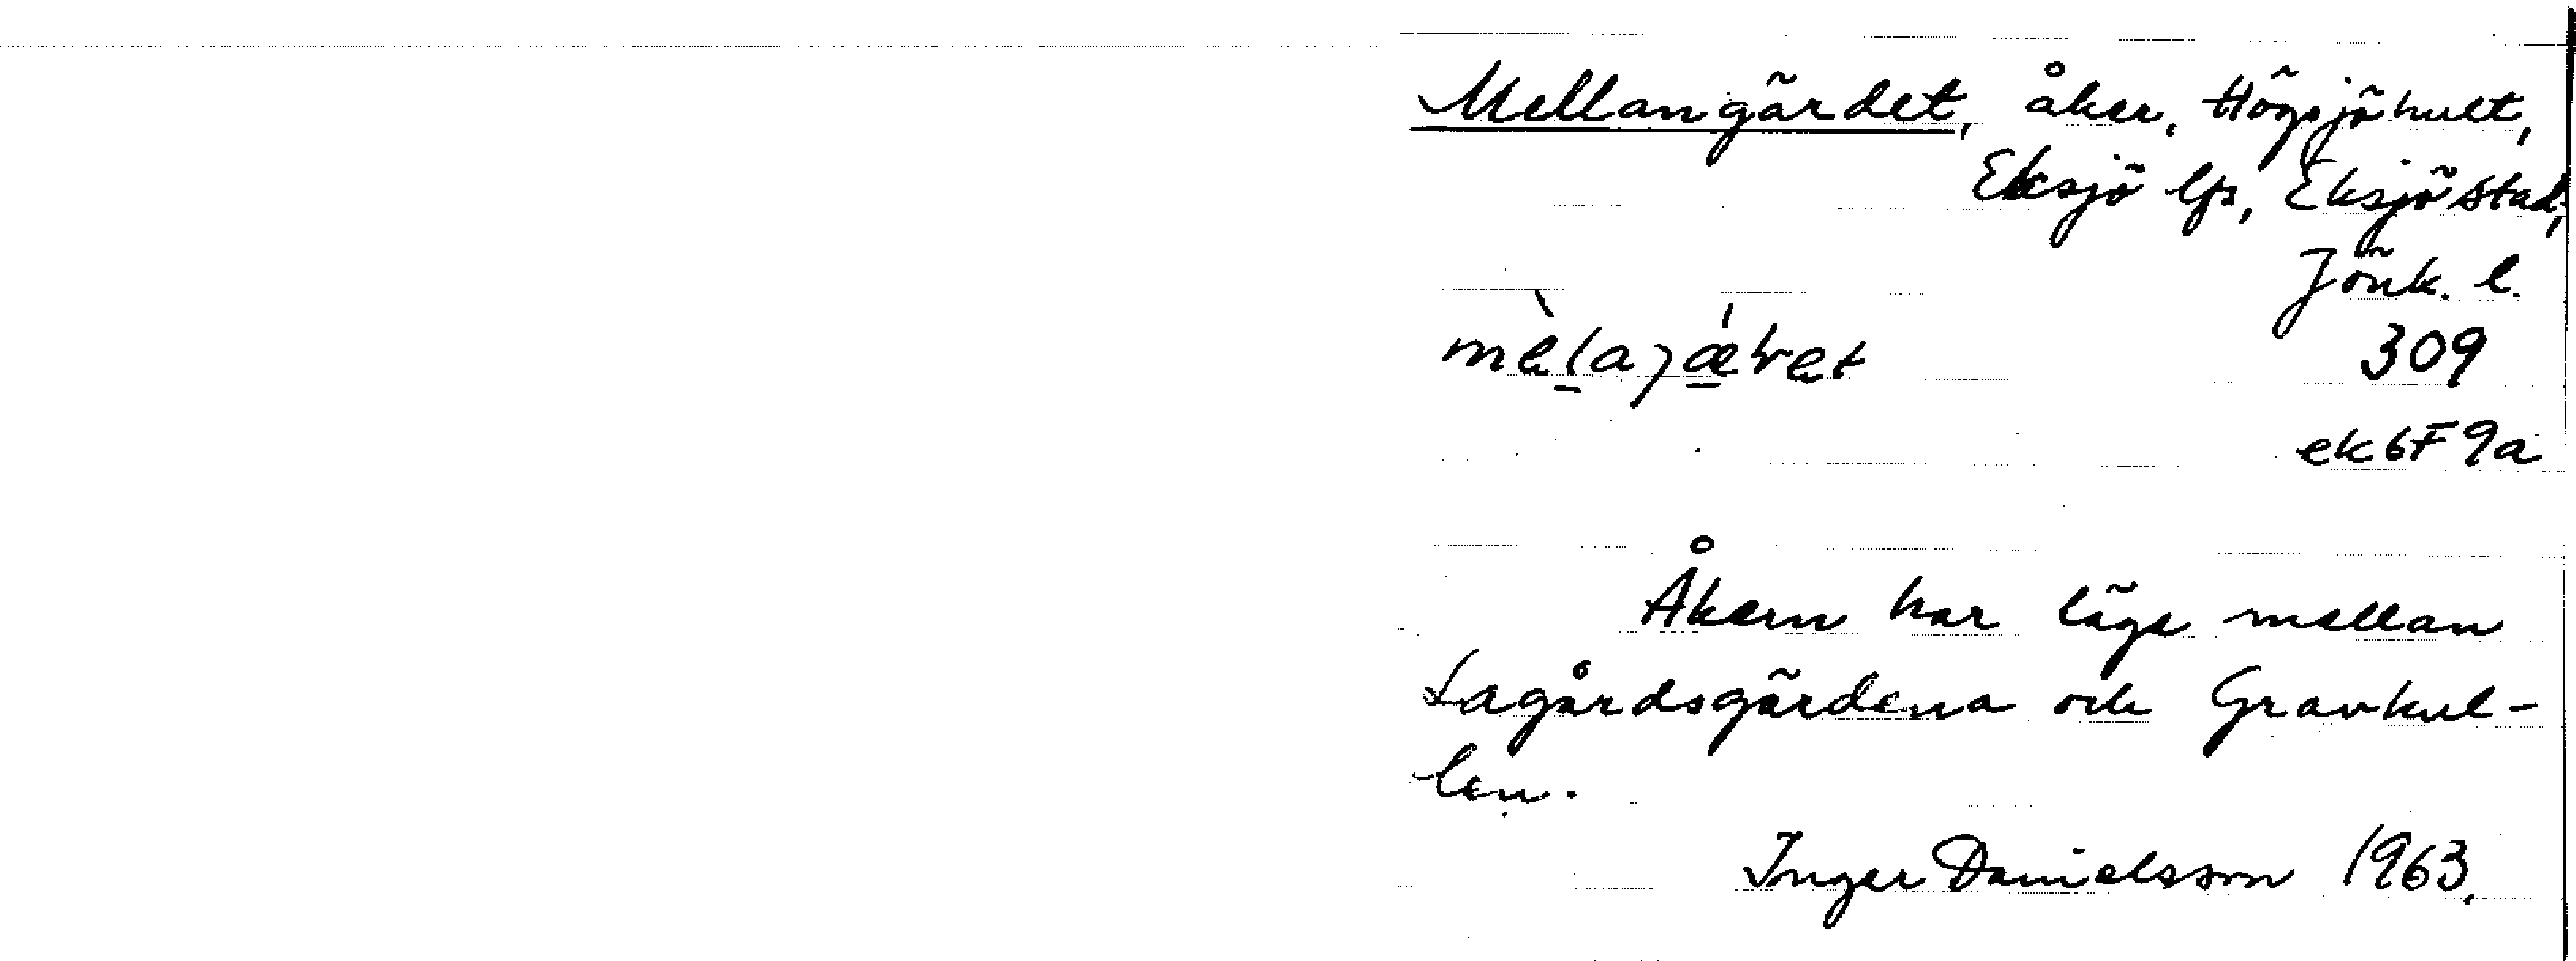 Mellangärdet, åker, Högsjöhult,
Eksjö lfs, Eksjö stad,
Jönk. l.
309
ek 6F9a
Åkern har läge mellan
Lagårdsgärdena och Gravkul-
len.
Inger Danielsson 1963.